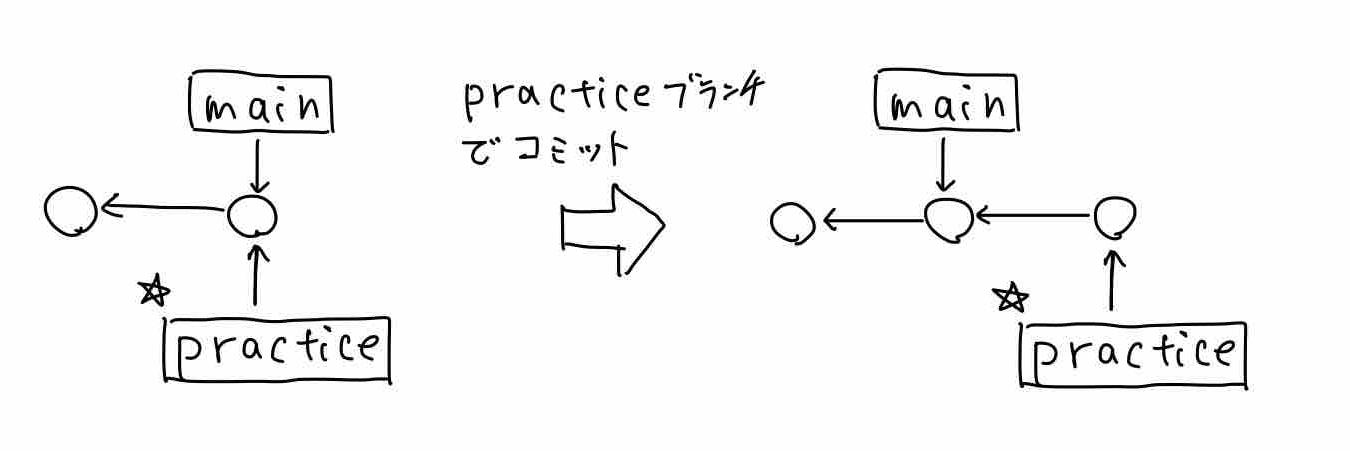 main
practice
practiceブランチ
でコミット
main
practice